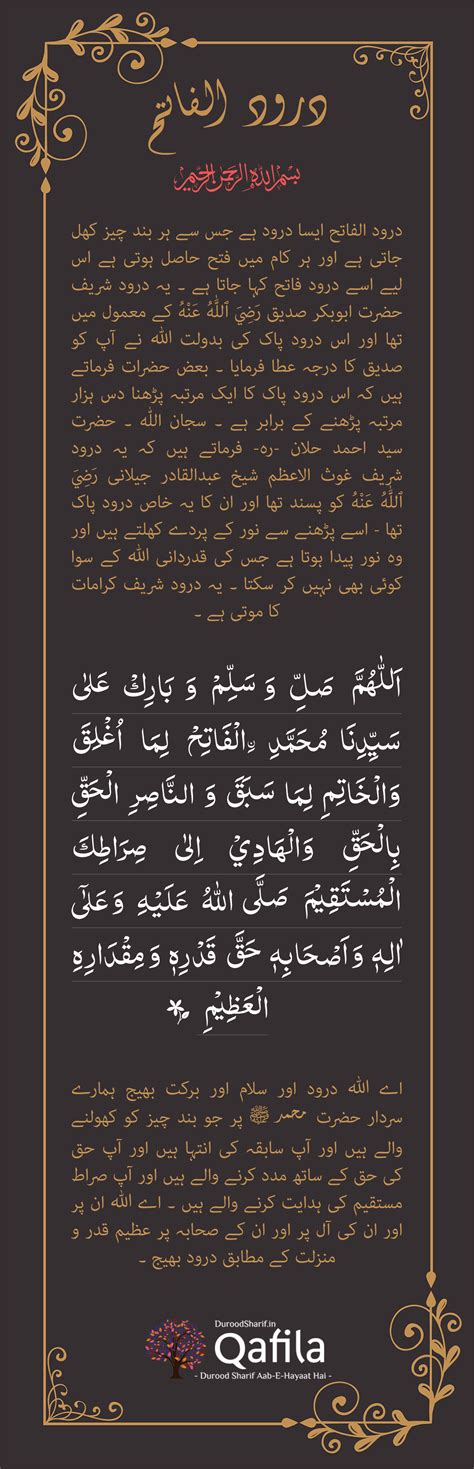 درود الفاتح
بسم الله الرحمن الرحيم
درود الفاتح ایسا درود ہے جس سے ہر بند چیز کھل
جاتی ہے اور ہر کام میں فتح حاصل ہوتی ہے اس
لیے اسے درود فاتح کہا جاتا ہے ۔ یہ درود شریف
حضرت ابوبکر صدیق رَضِيَ ٱللَّٰهُ عَنْهُ کے معمول میں
تھا اور اس درود پاک کی بدولت اللہ نے آپ کو
صدیق کا درجہ عطا فرمایا ۔ بعض حضرات فرماتے
ہیں کہ اس درود پاک کا ایک مرتبہ پڑھنا دس ہزار
مرتبہ پڑھنے کے برابر ہے ۔ سجان اللہ ۔ حضرت
سید احمد حلان -رہ- فرماتے ہیں کہ یہ درود
شریف غوث الاعظم شیخ عبدالقادر جیلانی رَضِيَ
ٱللَّٰهُ عَنْهُ کو پسند تھا اور ان کا یہ خاص درود پاک
تھا - اسے پڑھنے سے نور کے پردے کھلتے ہیں اور
وہ نور پیدا ہوتا ہے جس کی قدردانی اللہ کے سوا
کوئی بھی نہیں کر سکتا ۔ یہ درود شریف کرامات
کا موتی ہے ۔
اَللّٰهُمَّ صَلِّ وَ سَلِّمْ وَ بَارِكْ عَلٰى
سَيِّدِنَا مُحَمَّدِ ۣالْفَاتِحْ لِمَا اُغْلِقَ
وَالْخَاتِمِ لِمَا سَبَقَ وَ النَّاصِرِ الْحَقِّ
بِالْحَقِّ وَالْهَادِيْ اِلٰى صِرَاطِكَ
الْمُسْتَقِيْمَ صَلَّى اللهُ عَلَيْهِ وَعَلٰٓى
اٰلِهٖ وَاَصْحَابِهٖ حَقَّ قَدْرِهٖ وَمِقْدَارِهِ
الْعَظِيْمِ
اے اللہ درود اور سلام اور برکت بھیج ہمارے
سردار حضرت محمد ﷺ پر جو بند چیز کو کھولنے
والے ہیں اور آپ سابقہ کی انتہا ہیں اور آپ حق
کی حق کے ساتھ مدد کرنے والے ہیں اور آپ صراط
مستقیم کی ہدایت کرنے والے ہیں ۔ اے اللہ ان پر
اور ان کی آل پر اور ان کے صحابہ پر عظیم قدر و
منزلت کے مطابق درود بھیج ۔
DuroodSharif.in
Qafila
- Durood Sharif Aab-E-Hayaat Hai -